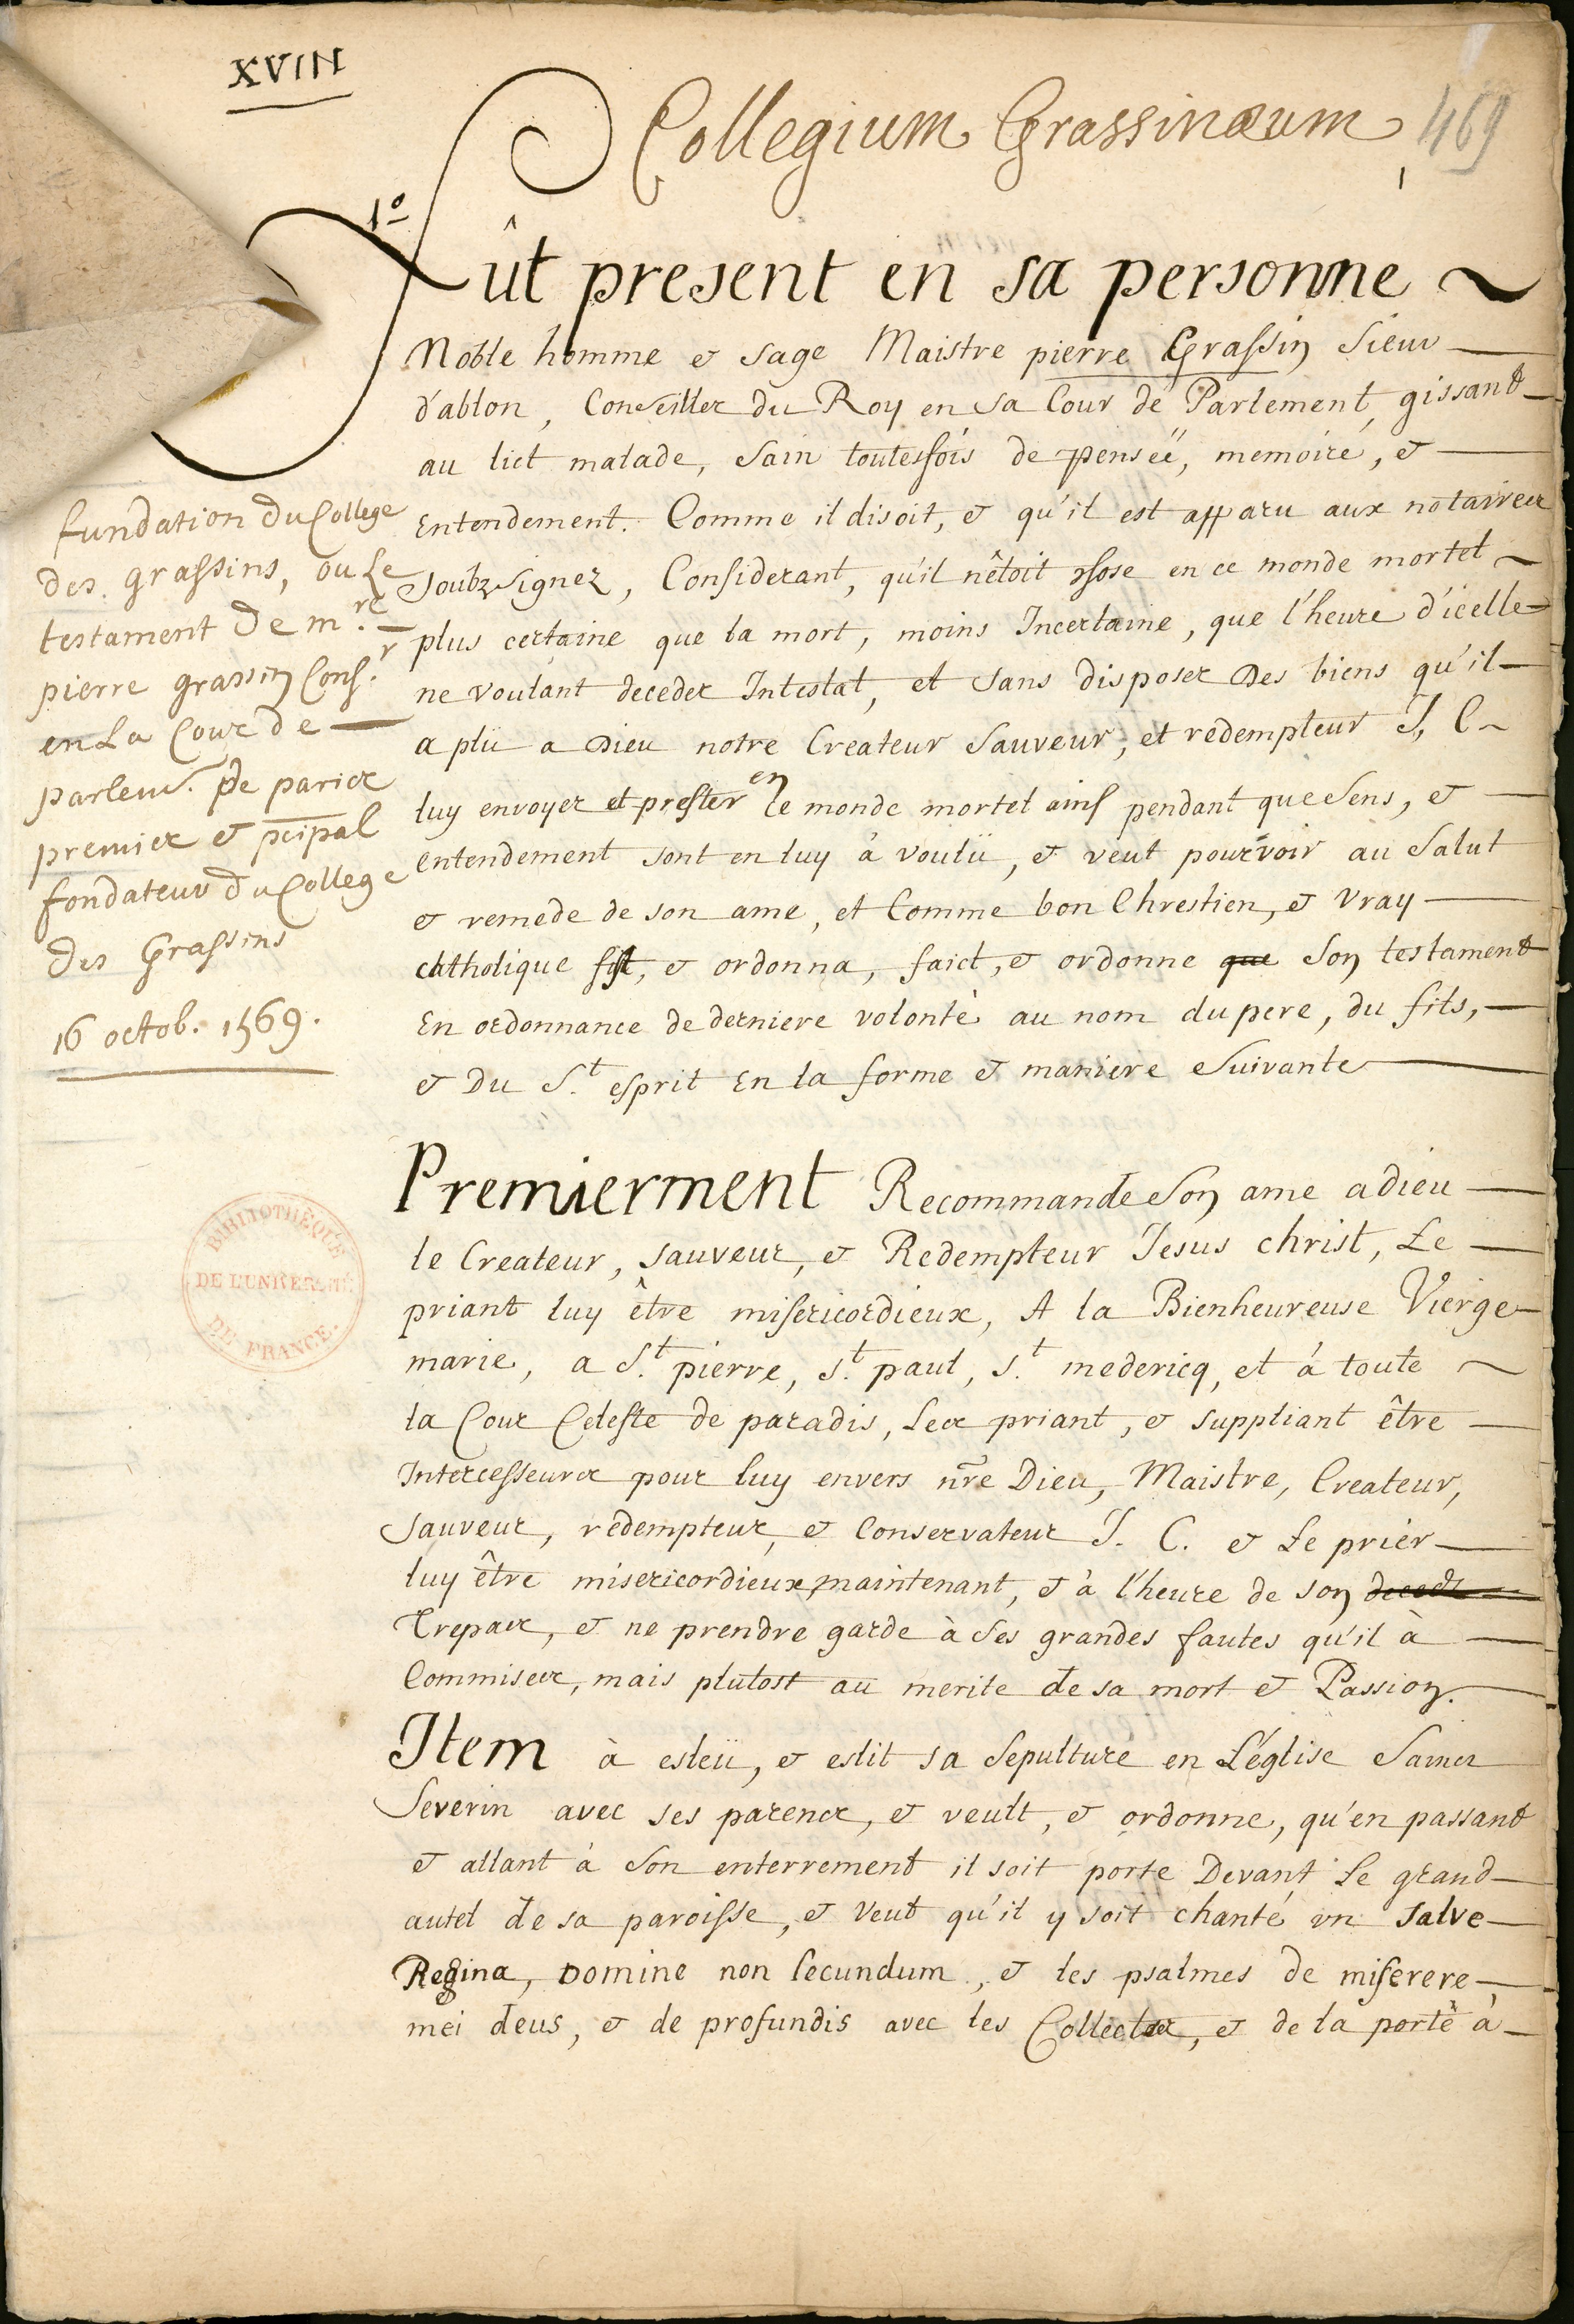 XVIII
Collegium Grassinæum
469
1º
Fût present en sa personne
Noble homme & sage Maistre pierre Grassin Sieur
d'ablon, Conseiller du Roy en sa Cour de Parlement, gissant
au lict malade, sain toutesfois de penseë, memoire, &
Entendement. Comme il disoit, & qu'il est apparu aux notaires
soubz signez, Considerant, qu'il n'êtoit chose en ce monde mortel
plus certaine que la mort, moins Incertaine, que l'heure d'icelle
ne voulant deceder Intestat, et sans disposer des biens qu'il
a plü a Dieu notre Createur Sauveur, et redempteur J. C
luy envoyer et prester en ce monde mortel ains pendant que sens, &
entendement sont en luy à voulü, & veut pourvoir au salut
& remede de son ame, et Comme bon Chrestien, & vray
catholique fist, & ordonna, faict, & ordonne que son testament
En ordonnance de derniere volonté au nom du pere, du fils,
& Du S.t esprit En la forme & maniere suivante
fundation du College
des grassins, ou Le
testament de m.re
pierre grassin Cons.r
en La Cour de
parlem.t de paris
premier & pcipal
fondateur du College
des Grassins
16 octob. 1569.
Premierment Recommande son ame a dieu
le Createur, sauveur, & Redempteur Jesus christ, Le
priant luy être misericordieux, A la Bienheureuse Vierge
marie, a S.t pierre, s.t paul, s.t medericq, et à toute
la Cour Celeste de paradis, Les priant, & suppliant être
Intercesseurs pour luy envers nre Dieu, Maistre, Createur,
Sauveur, redempteur, & Conservateur J. C. & Le prier
luy être misericordieux maintenant, & à l'heure de son deceds
Trepas, & ne prendre garde à ses grandes fautes qu'il à
Commises, mais plutost au merite de sa mort & Passion.
Item à esleü, & eslit sa sepulture en L'église Sainct
Severin avec ses parens, & veult, & ordonne, qu'en passant
& allant à son enterrement il soit porte Devant Le grand
autel de sa paroisse, & veut qu'il y soit chanté un salve
Regina, Domine non secundum, & les psalmes de miserere
mei deus, & de profundis avec les Collectes, & de la porté à
BIBLIOTHÈQUE
DE L'UNIVERSITÉ
DE FRANCE.